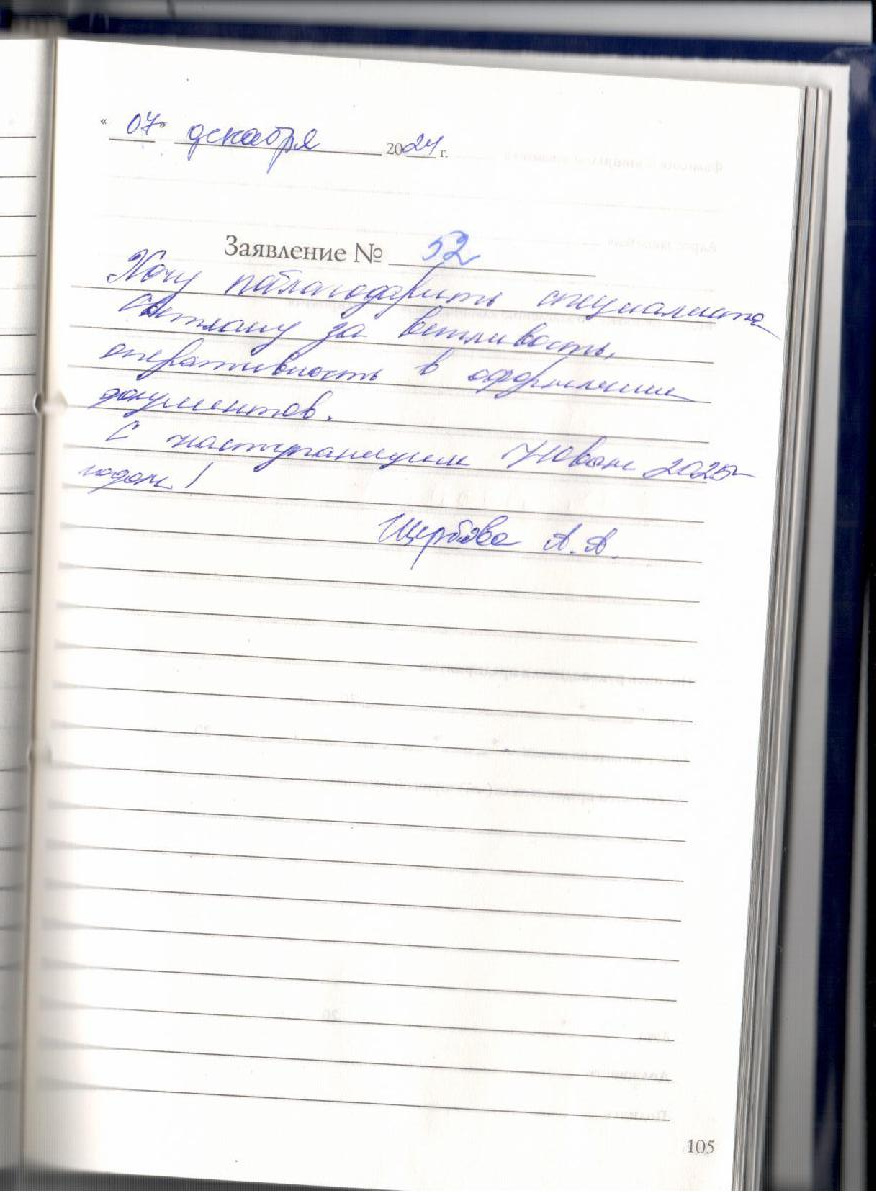 "07" декабря 2024 г.
Заявление № 52
Хочу поблагодарить специалиста
Светлану за вежливость,
оперативность в оформлении
документов.
С наступающим Новым 2025
годом!
Щербова А.А.
105